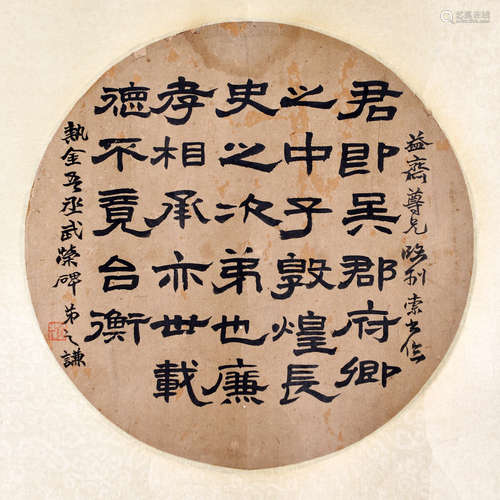 益齋尊兄
君即吳郡府卿
之中子敦煌長
史之次弟也廉
孝相承亦世載
德不竟台衡
執金吾丞武榮碑 弟之謙